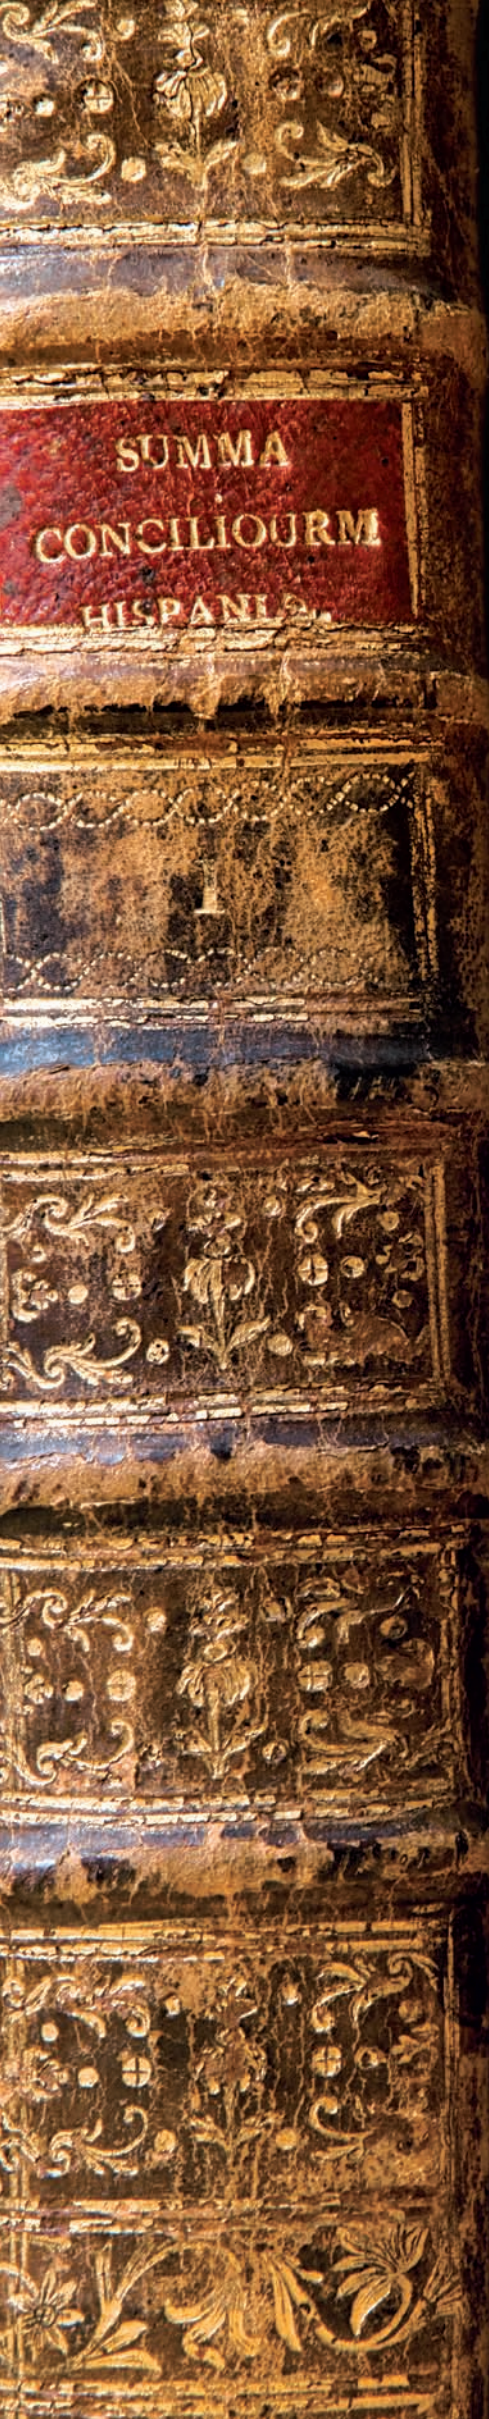 SUMMA
CONCILIOURM
HISPANIÆ.
I